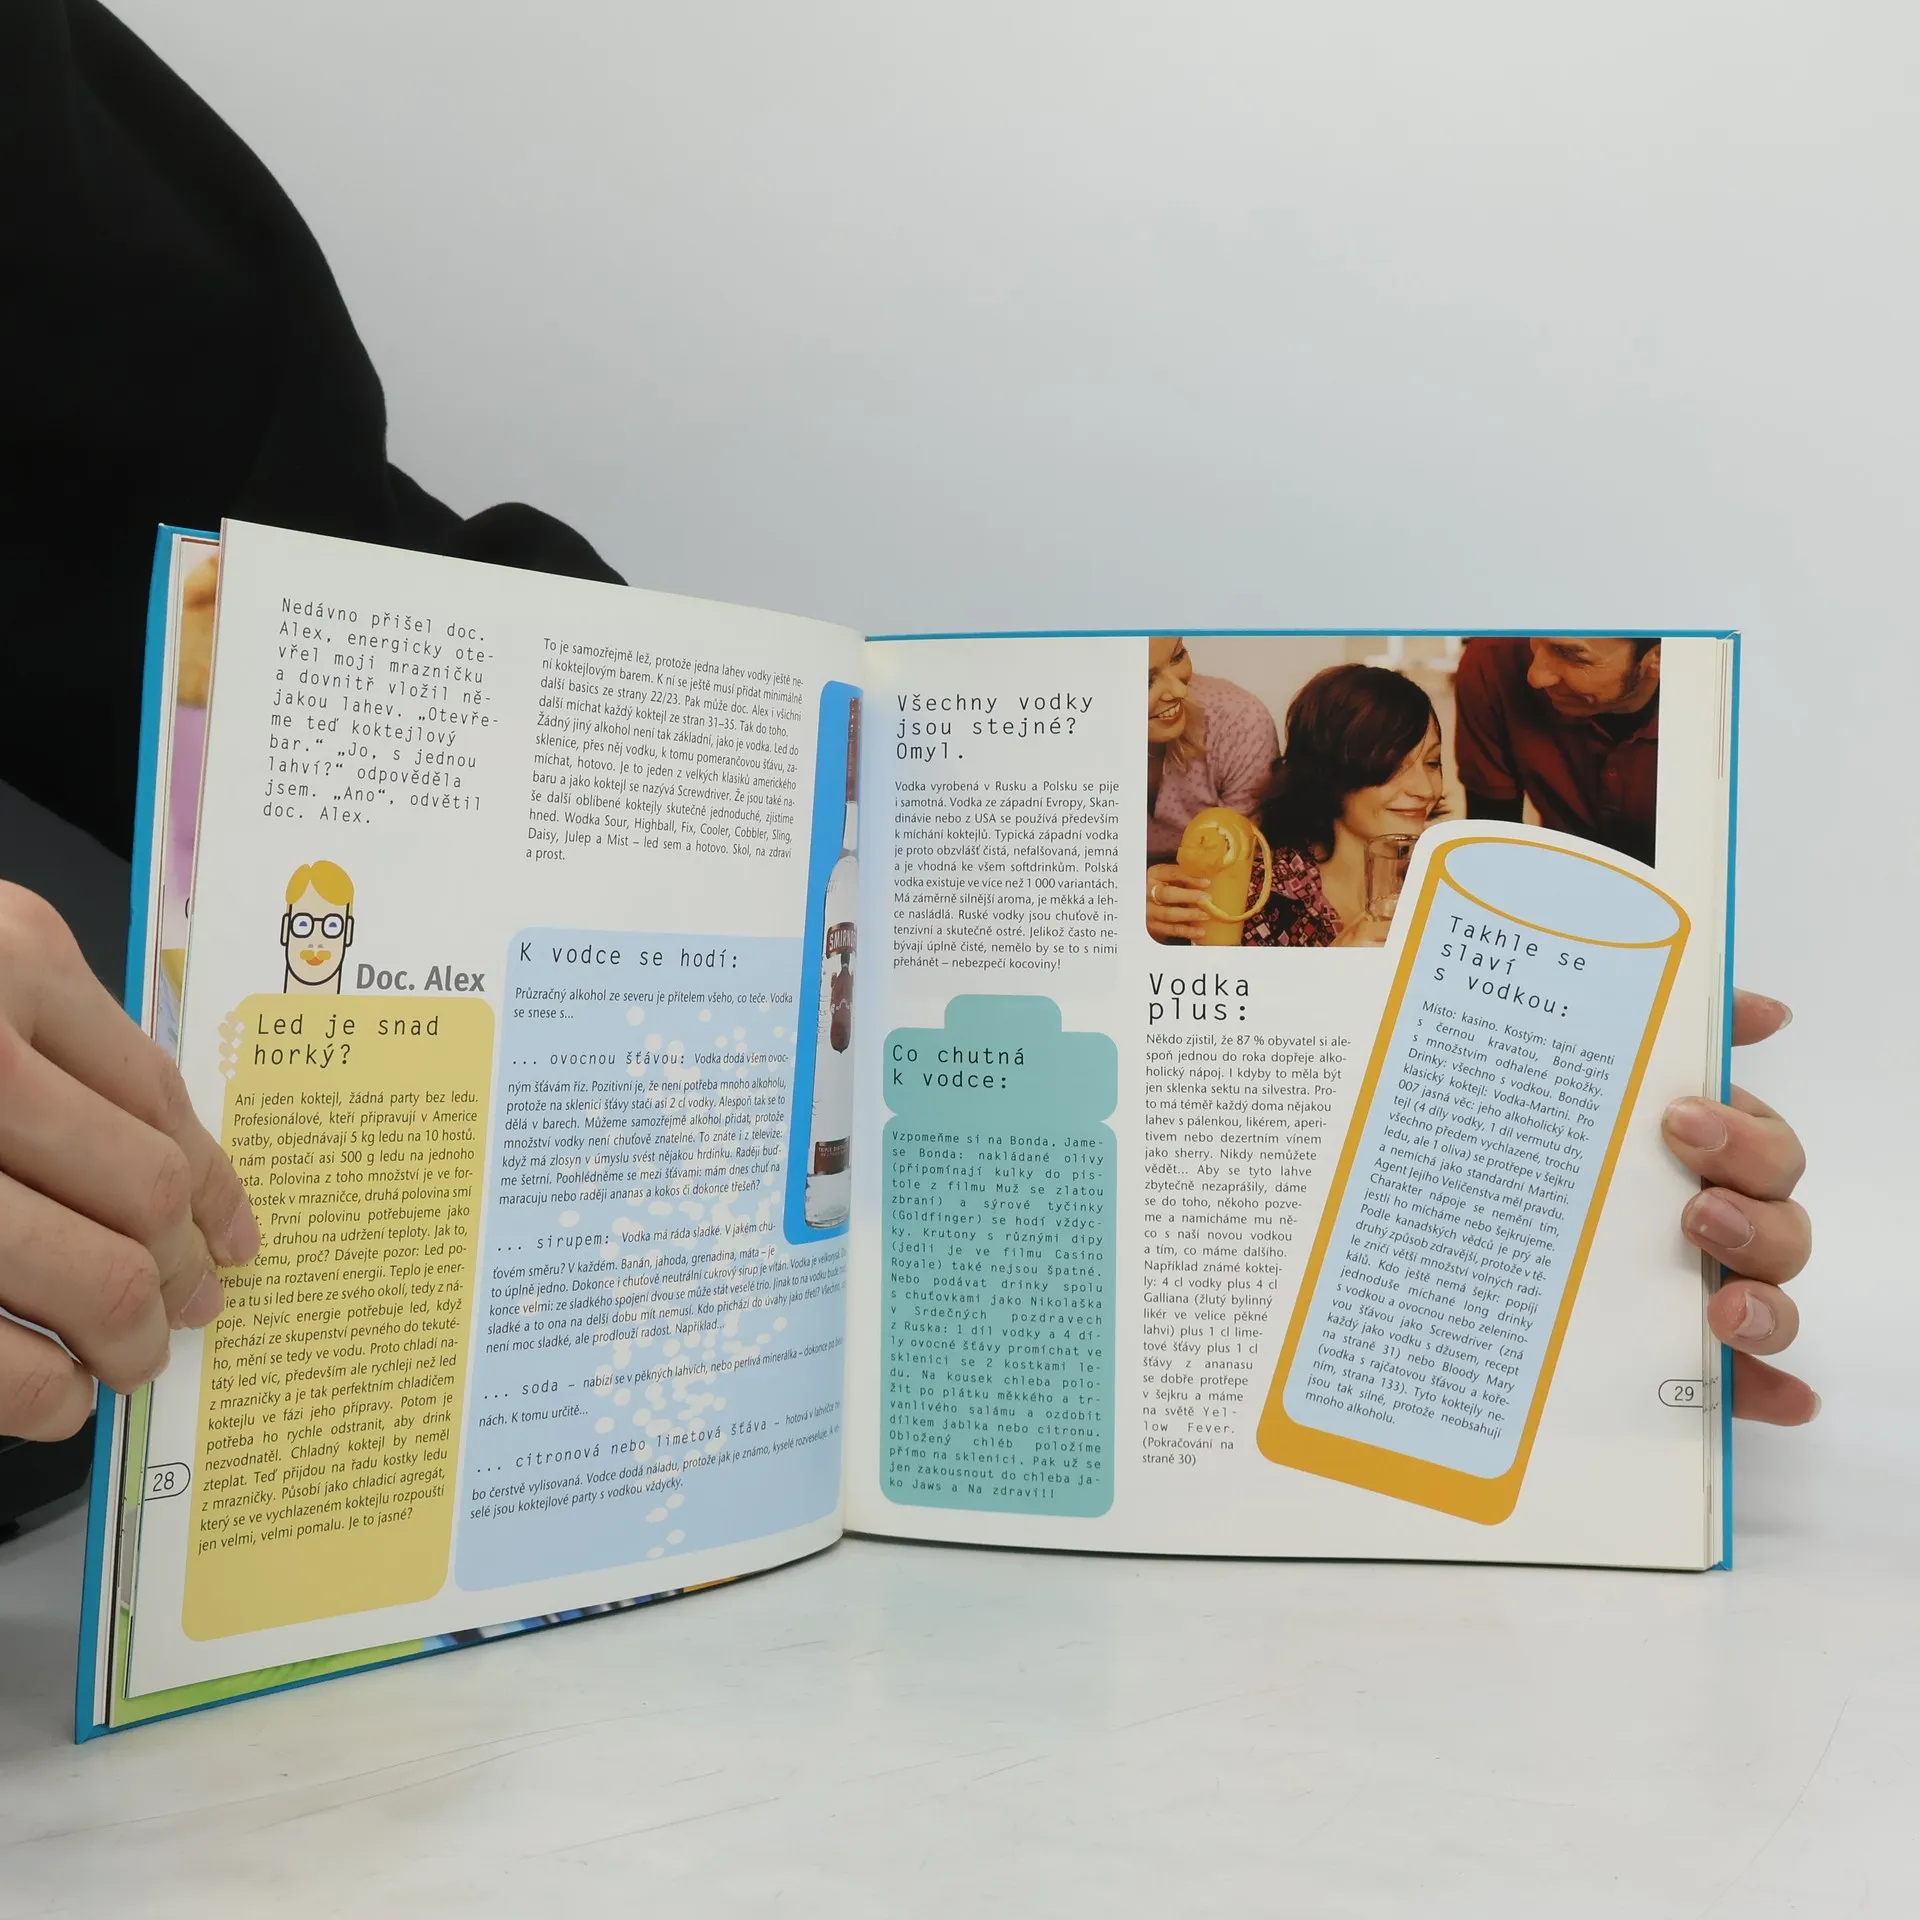 Nedávno přišel doc.
Alex, energicky ote-
vřel moji mrazničku
a dovnitř vložil ně-
jakou lahev. „Otevře-
me teď koktejlový
bar.“ „Jo, s jednou
lahví?“ odpověděla
jsem. „Ano“, odvětil
doc. Alex.
Doc. Alex
Led je snad
horký?
Ani jeden koktejl, žádná party bez ledu.
Profesionálové, kteří připravují v Americe
svatby, objednávají 5 kg ledu na 10 hostů.
nám postačí asi 500 g ledu na jednoho
Polovina z toho množství je ve for-
kostek v mrazničce, druhá polovina smí
První polovinu potřebujeme jako
druhou na udržení teploty. Jak to,
čemu, proč? Dávejte pozor: Led po-
třebuje na roztavení energii. Teplo je ener-
ie a tu si led bere ze svého okolí, tedy z ná-
poje. Nejvíc energie potřebuje led, když
přechází ze skupenství pevného do tekuté-
ho, mění se tedy ve vodu. Proto chladí na-
tátý led víc, především ale rychleji než led
z mrazničky a je tak perfektním chladičem
koktejlu ve fázi jeho přípravy. Potom je
potřeba ho rychle odstranit, aby drink
nezvodnatěl. Chladný koktejl by neměl
zteplat. Teď přijdou na řadu kostky ledu
z mrazničky. Působí jako chladicí agregát,
který se ve vychlazeném koktejlu rozpouští
jen velmi, velmi pomalu. Je to jasné?
28
To je samozřejmě lež, protože jedna lahev vodky ještě ne-
ní koktejlovým barem. K ní se ještě musí přidat minimálně
další basics ze strany 22/23. Pak může doc. Alex i všichni
další míchat každý koktejl ze stran 31–35. Tak do toho.
Žádný jiný alkohol není tak základní, jako je vodka. Led do
sklenice, přes něj vodku, k tomu pomerančovou šťávu, za-
míchat, hotovo. Je to jeden z velkých klasiků amerického
baru a jako koktejl se nazývá Screwdriver. Že jsou také na-
še další oblíbené koktejly skutečně jednoduché, zjistíme
hned. Wodka Sour, Highball, Fix, Cooler, Cobbler, Sling,
Daisy, Julep a Mist – led sem a hotovo. Skol, na zdraví
a prost.
K vodce se hodí:
Průzračný alkohol ze severu je přítelem všeho, co teče. Vodka
se snese s...
... ovocnou šťávou: Vodka dodá všem ovoc-
ným šťávám říz. Pozitivní je, že není potřeba mnoho alkoholu,
protože na sklenici šťávy stačí asi 2 cl vodky. Alespoň tak se to
dělá v barech. Můžeme samozřejmě alkohol přidat, protože
množství vodky není chuťově znatelné. To znáte i z televize:
když má zlosyn v úmyslu svést nějakou hrdinku. Raději buď-
me šetrní. Poohlédněme se mezi šťávami: mám dnes chuť na
maracuju nebo raději ananas a kokos či dokonce třešeň?
... sirupem: Vodka má ráda sladké. V jakém chu-
ťovém směru? V každém. Banán, jahoda, grenadina, máta – je
to úplně jedno. Dokonce i chuťově neutrální cukrový sirup je vítán. Vodka je velkorysá.
konce velmi: ze sladkého spojení dvou se může stát veselé trio. Jinak to na vodku bude
sladké a to ona na delší dobu mít nemusí. Kdo přichází do úvahy jako třetí?
není moc sladké, ale prodlouží radost. Například...
... soda – nabízí se v pěkných lahvích, nebo perlivá minerálka – dokonce po
nách. K tomu určitě...
... citronová nebo limetová šťáva – hotová v lahvičce
bo čerstvě vylisovaná. Vodce dodá náladu, protože jak je známo, kyselé rozveseluje. A
selé jsou koktejlové party s vodkou vždycky.
SMIRNO
Všechny vodky
jsou stejné?
Omyl.
Vodka vyrobená v Rusku a Polsku se pije
i samotná. Vodka ze západní Evropy, Skan-
dinávie nebo z USA se používá především
k míchání koktejlů. Typická západní vodka
je proto obzvlášť čistá, nefalšovaná, jemná
a je vhodná ke všem softdrinkům. Polská
vodka existuje ve více než 1 000 variantách.
Má záměrně silnější aroma, je měkká a leh-
ce nasládlá. Ruské vodky jsou chuťově in-
tenzivní a skutečně ostré. Jelikož často ne-
bývají úplně čisté, nemělo by se to s nimi
přehánět – nebezpečí kocoviny!
Co chutná
k vodce:
Vzpomeňme si na Bonda, Jame-
se Bonda: nakládané olivy
(připomínají kulky do pis-
tole z filmu Muž se zlatou
zbraní) a sýrové tyčinky
(Goldfinger) se hodí vždyc-
ky. Krutony s různými dipy
(jedli je ve filmu Casino
Royale) také nejsou špatné.
Nebo podávat drinky spolu
s chuťovkami jako Nikolaška
v Srdečných pozdravech
z Ruska: 1 díl vodky a 4 dí-
ly ovocné šťávy promíchat ve
sklenici se 2 kostkami le-
du. Na kousek chleba polo-
žit po plátku měkkého a tr-
vanlivého salámu a ozdobit
dílkem jablka nebo citronu.
Obložený chléb položíme
přímo na sklenici. Pak už se
jen zakousnout do chleba ja-
ko Jaws a Na zdraví!!
Vodka
plus:
Někdo zjistil, že 87 % obyvatel si ale-
spoň jednou do roka dopřeje alko-
holický nápoj. I kdyby to měla být
jen sklenka sektu na silvestra. Pro-
to má téměř každý doma nějakou
lahev s pálenkou, likérem, aperi-
tivem nebo dezertním vínem
jako sherry. Nikdy nemůžete
vědět... Aby se tyto lahve
zbytečně nezaprášily, dáme
se do toho, někoho pozve-
me a namícháme mu ně-
co s naší novou vodkou
a tím, co máme dalšího.
Například známé koktej-
ly: 4 cl vodky plus 4 cl
Galliana (žlutý bylinný
likér ve velice pěkné
lahvi) plus 1 cl lime-
tové šťávy plus 1 cl
šťávy z ananasu
se dobře protřepe
v šejkru a máme
na světě Yel-
low Fever.
(Pokračování na
straně 30)
Takhle se
slaví
s vodkou:
Místo: kasino. Kostým: tajní agenti
s černou kravatou, Bond-girls
s množstvím odhalené pokožky.
Drinky: všechno s vodkou. Bondův
klasický koktejl: Vodka-Martini. Pro
007 jasná věc: jeho alkoholický kok-
tejl (4 díly vodky, 1 díl vermutu dry,
všechno předem vychlazené, trochu
ledu, ale 1 oliva) se protřepe v šejkru
a nemíchá jako standardní Martini.
Agent Jejího Veličenstva měl pravdu.
Charakter nápoje se nemění tím,
jestli ho mícháme nebo šejkrujeme.
Podle kanadských vědců je prý ale
druhý způsob zdravější, protože v tě-
le zničí větší množství volných radi-
kálů. Kdo ještě nemá šejkr: popíjí
jednoduše míchané long drinky
s vodkou a ovocnou nebo zelenino-
vou šťávou jako Screwdriver (zná
každý jako vodku s džusem, recept
na straně 31) nebo Bloody Mary
(vodka s rajčatovou šťávou a koře-
ním, strana 133). Tyto koktejly ne-
jsou tak silné, protože neobsahují
mnoho alkoholu.
29